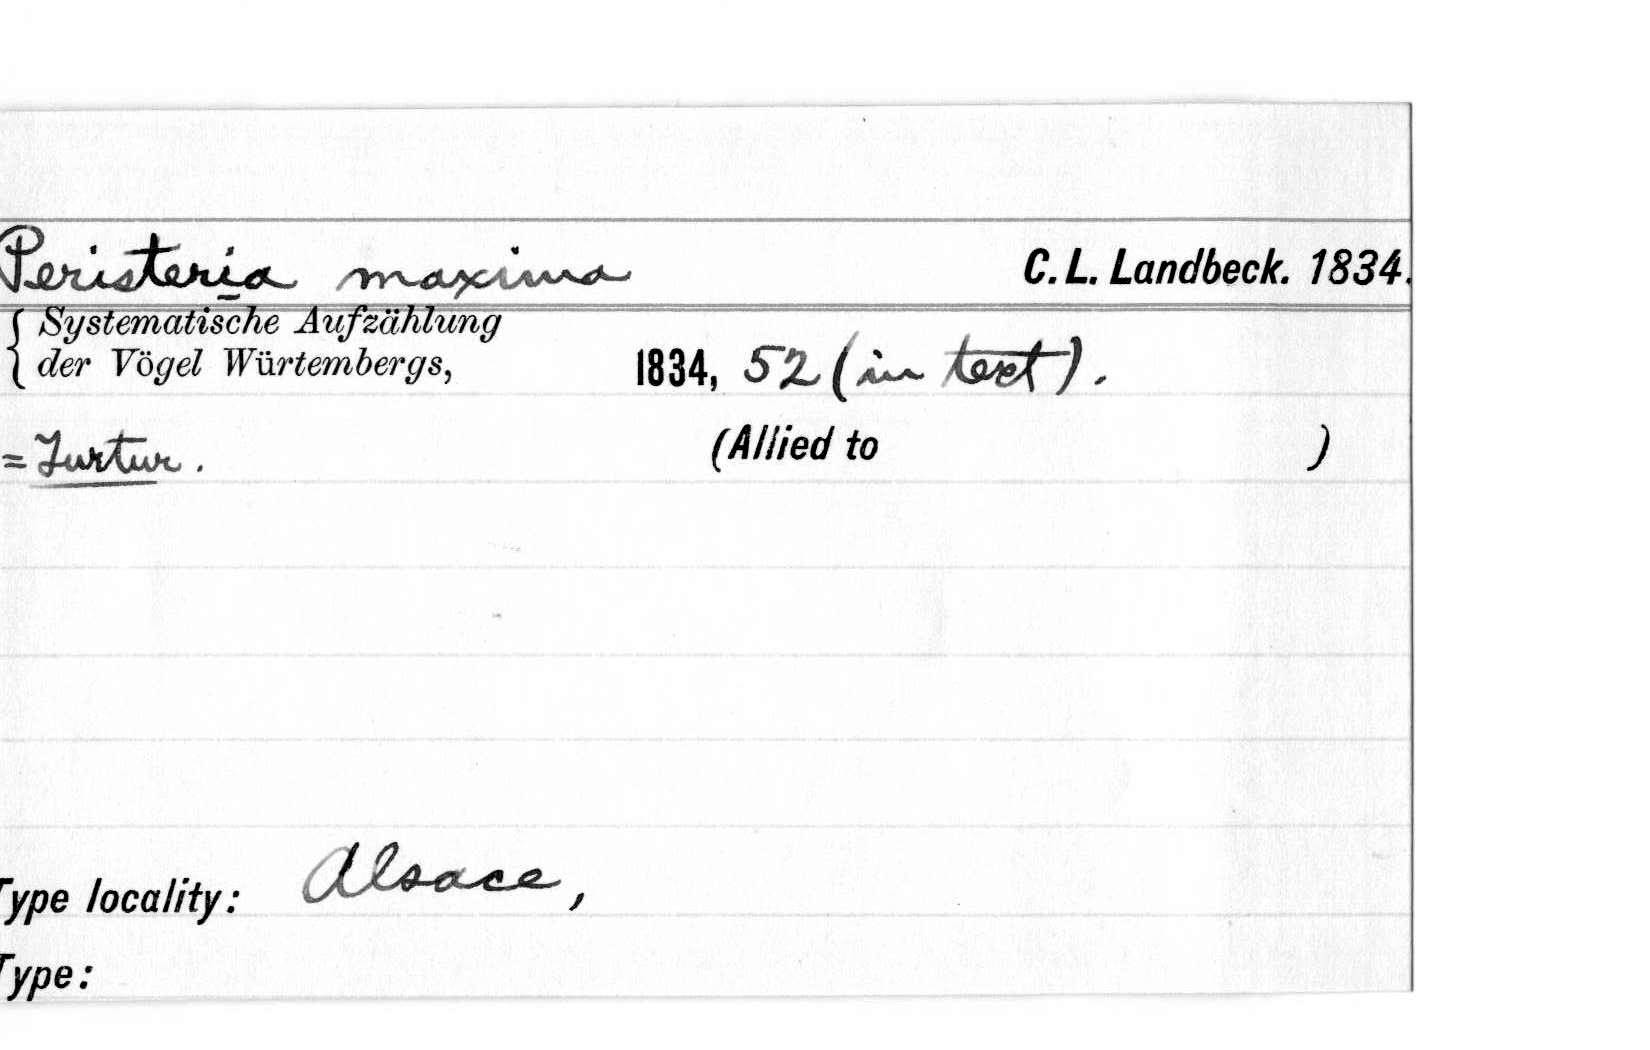 Peristeria maxima C. L. Landbeck. 1834.
Systematische Aufzählung
der Vögel Würtembergs, 1834, 52 (in text).
= Turtur. (Allied to )
Type locality: Alsace,
Type: